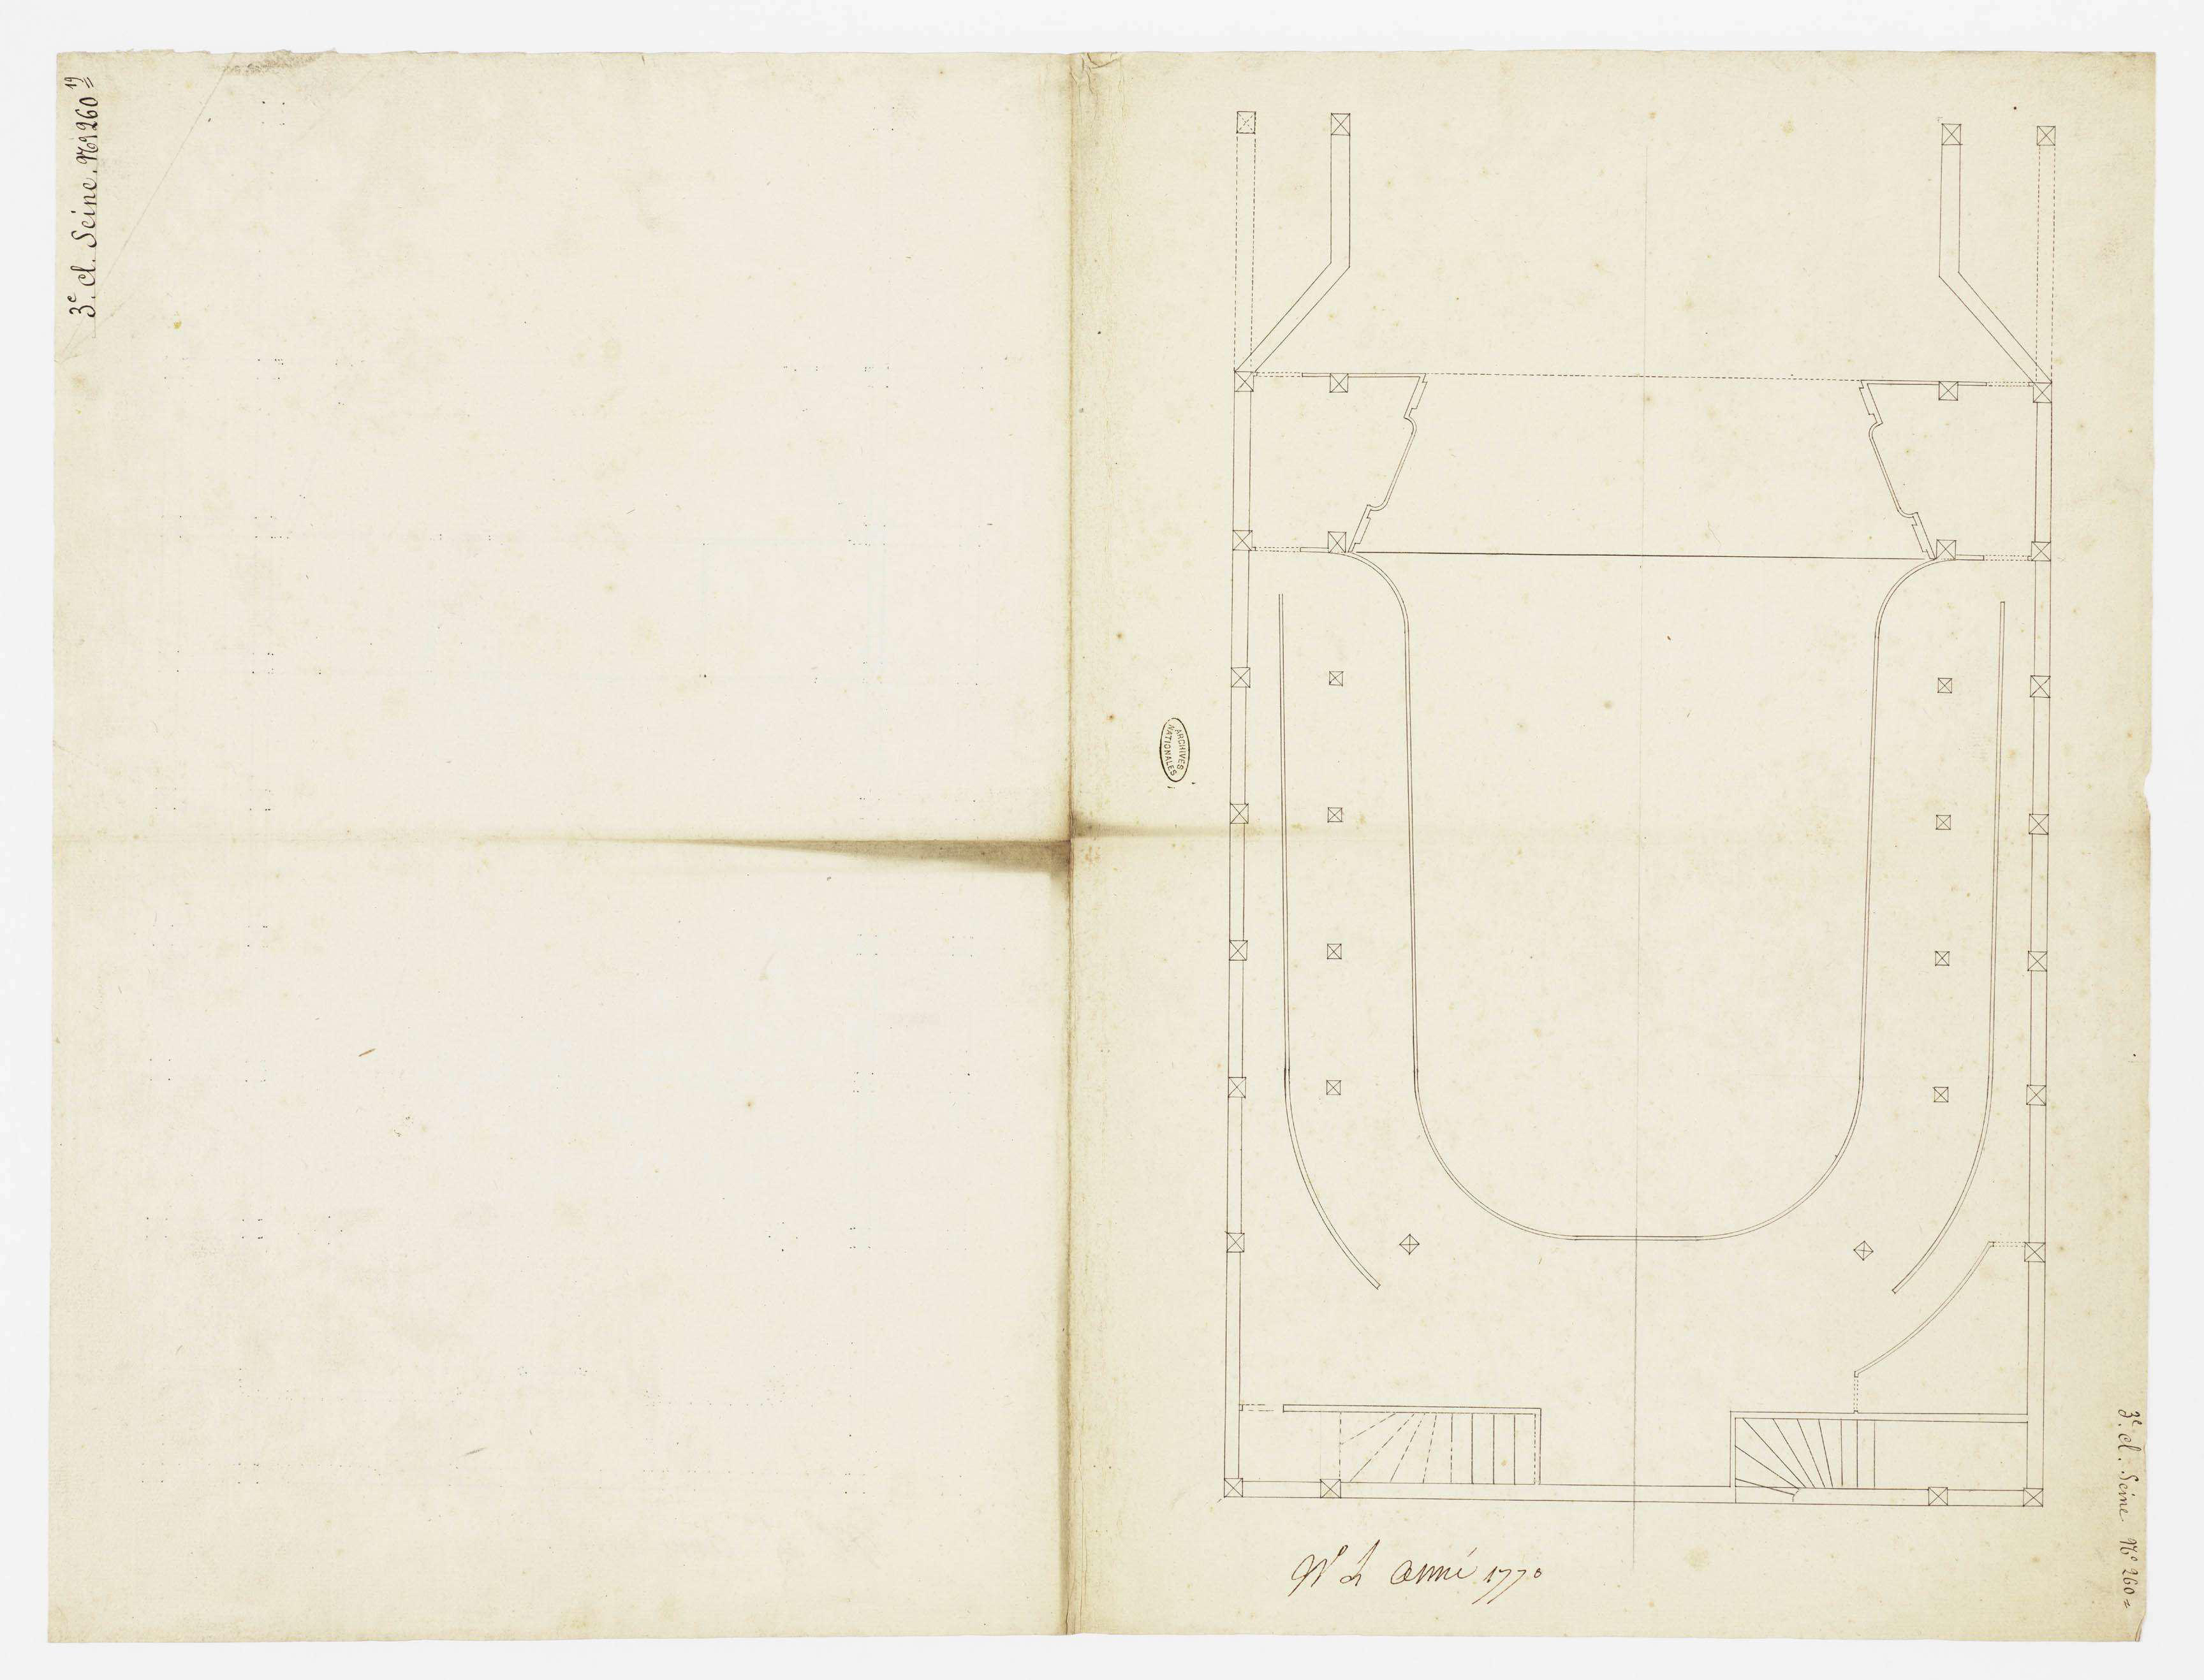 3e. cl. Seine. No 260 19
ARCHIVES
NATIONALES
année 1770
3e. cl. Seine No 260